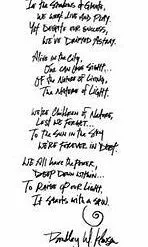 In the Shadows of Ghosts,
We Work Live and Play.
Yet Despite our Success,
We've Drifted Astray.
Alive in the City,
One can Lose Sight...
Of the Nature of Living,
The Nature of Light.
We're Children of Nature,
Lest we Forget...
To the Sun in the Sky
We're Forever in Debt.
We All Have the Power,
Deep Down Within...
To Raise up our Light,
It Starts with a Spin.